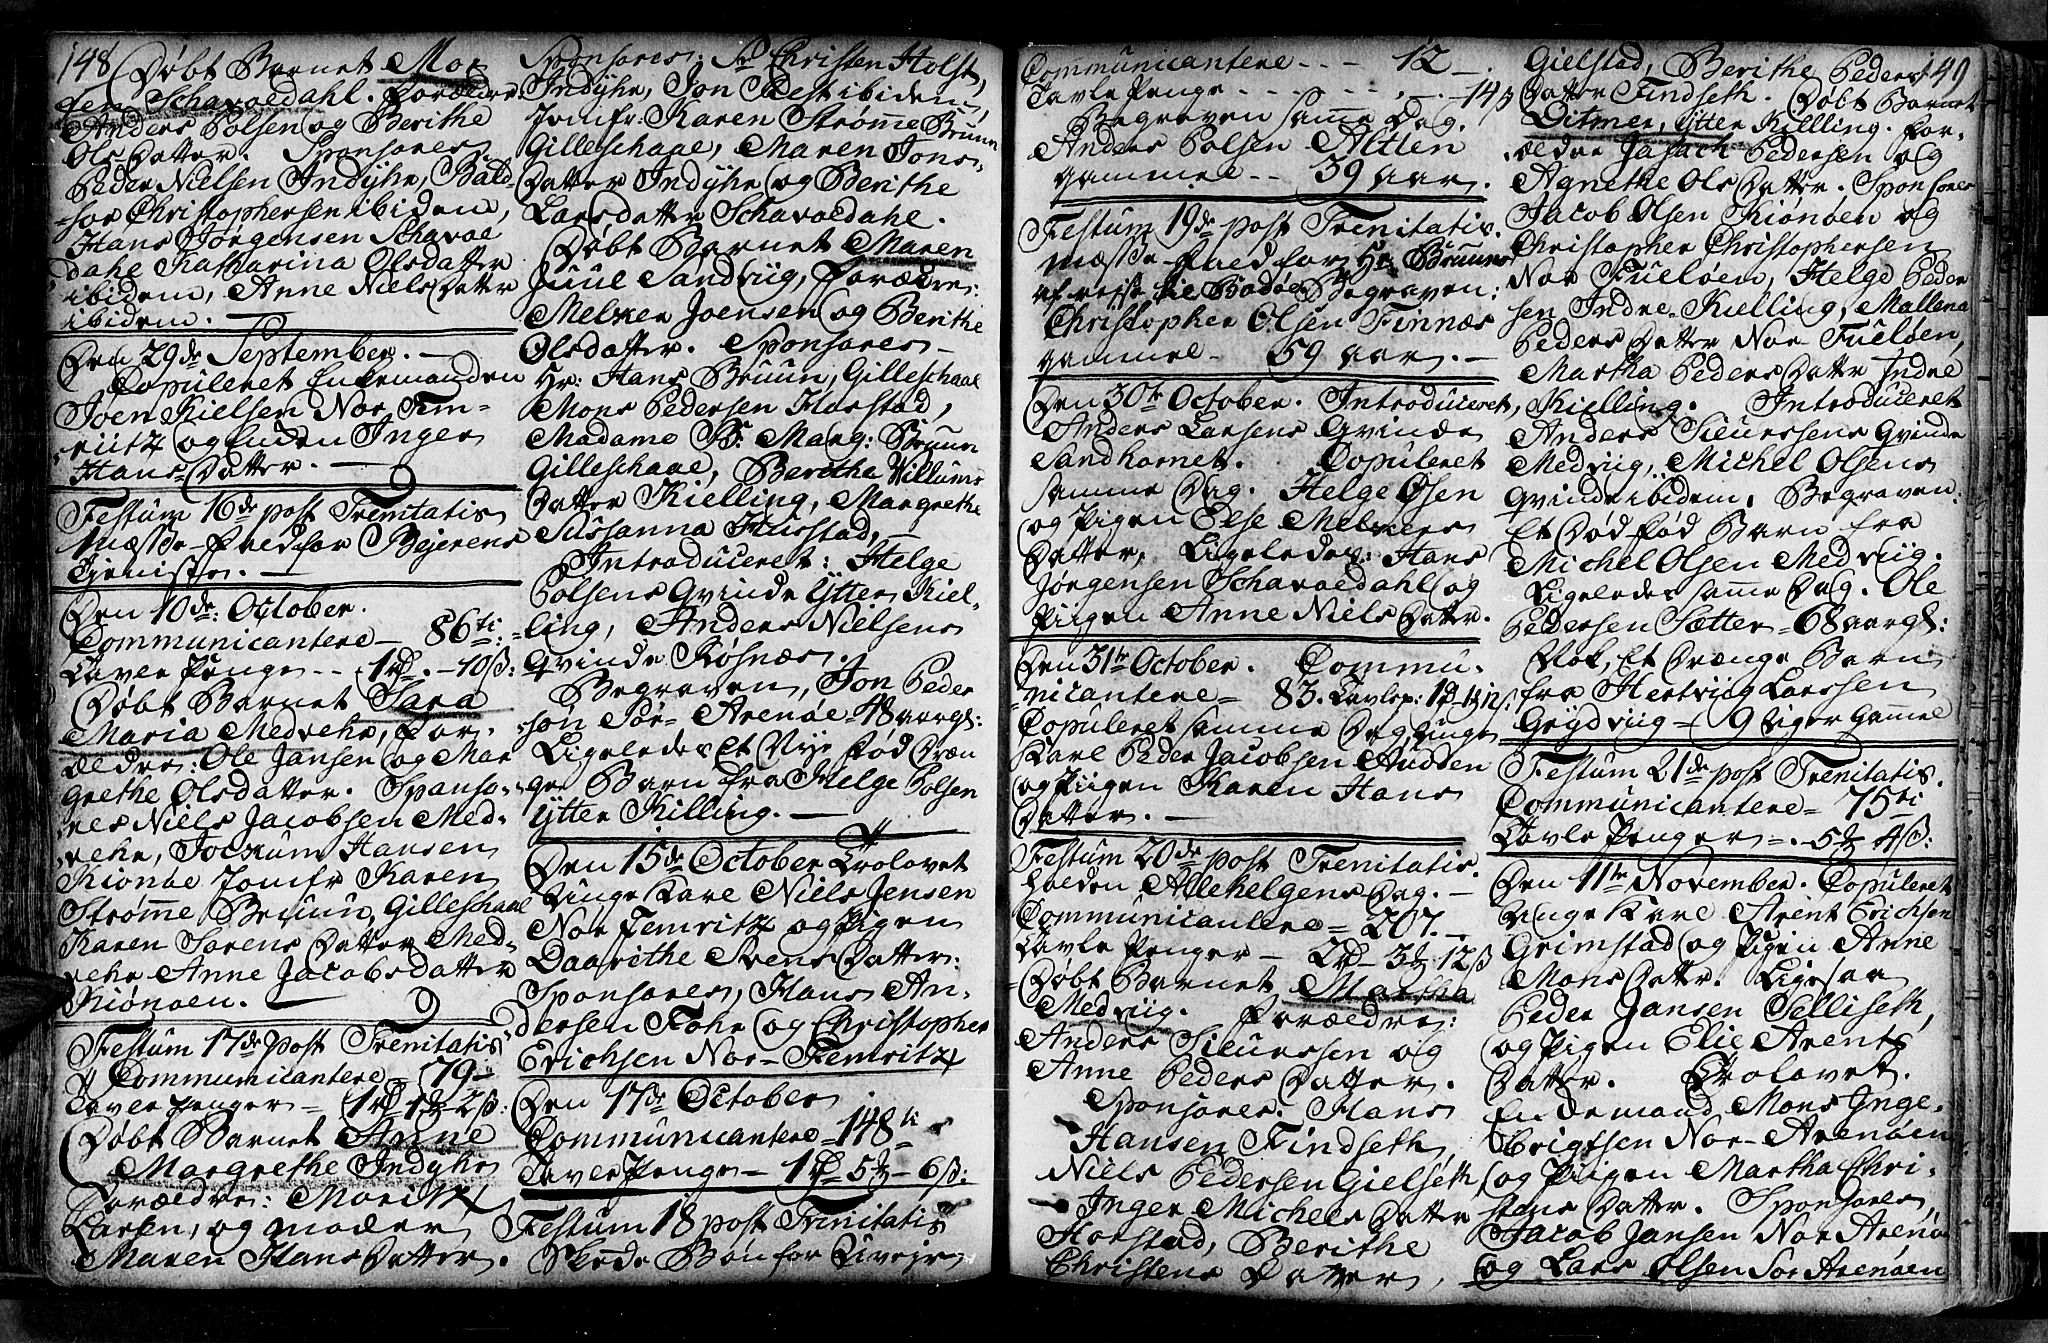 148
Døbt Barnet Mor
ten Schavoldahl. Forældre:
Anders Polsen og Berithe
Ols Datter. Sponsores
Peder Nielsen Indÿhr, Bald-
sor Christophersen ibidem,
Hans Jørgensen Schavol
dahl Katharina Olsdatter
ibidem, Anne Niels Datter
ibidem.
Den 29de September.
Copuleret Enkemanden
Joen Kielsen Nor Fem-
riitz og Enken Inger
Hans Datter.
Festum 16de post Trenitatis
Mæsse-Fald for Bejerens
Tjeniste.
Den 10de October.
Communicantere - 86ti
Tavle Penge - 1rd. - 10ß:
Døbt Barnet Sara
Maria Medvehr, For-
ældre: Ole Jansen og Mar
Grethe Olsdatter. Sponso-
res Niels Jacobsen Med-
vehr, Jockum Hansen
Kionøe Jomfr Karen
Strømme Bruun, Gilleschaal
Karen Sørens Datter Med-
vehr Anne Jacobsdatter
Kiønøen.
Festum 17de post Trenitatis
Communicantere - 79
Tavle Penger - 1rd 1 2ß:
Døbt Barnet Anne
Margrethe Indÿhr
Forældre: Moritz
Larsen, og moder
Maren Hans Datter.
Sponsores: Sr Christen Holst,
Indÿhr, Jon Pest ibidem,
Jomfr: Karen Strømme Bruun
Gilleschaal, Maren Jons-
Datter Indÿhr og Berithe
Larsdatter Schavoldahl.
Døbt Barnet Maren
Juul Sandviig, Forældre:
Melker Joensen og Berithe
Olsdatter. Sponsores
Hr: Hans Bruun, Gilleschaal
Mons Pedersen Harstad,
Madame Marg: Bruun
Gilleschaal, Beritha Villums
Datter Kielling, Margrethe
Susanna Husstad,
Introduceret: Helge
Polsens Qvinde Ÿtter Kiel-
ling, Anders Nielsens
Qvinde Kosnæs.
Begraven, Jon Peder
søn Sør-Arenøe 48 aar gl:
Ligeledes Et Nye Fød Dræn
ge Barn fra Helge Polsen
Ÿtter Killing.
Den 15de October Trolovet
Unge Karl Niels Jensen
Nor Femritz og Pigen
Daarithe Svens Datter:
Sponsores, Hans An-
dersen Fohr og Christopher
Erichsen Nor-Femritz
Den 17de October
Communicantere 148ti
Tavle Penge - 1rd 5 - 6ß:
Festum 18 post Trinitatis
Skede Bøn for Livøjr
Communicantere - - - 12
Tavle Penge - - - 14ß
Begraven samme Dag.
Anders Polsen Altlen
gammel - - 39 aar.
Festum 19de post Trenitatis.
Mæsse-Fald for Hr Bruuns
afrejse til Bodøe Begraven:
Christopher Olsen Finnæs
gammel - 59 aar.
Den 30te October. Introduceret,
Anders Larsens Qvinde
Sandhornet. Copuleret
samme Dag. Helge Olsen
og Pigen Else Melkers
Datter, Ligeledes: Hans
Jørgensen Schavoldahl og
Piigen Anne Niels Datter.
Den 31te October. Commu-
nicantere 83. Tavlep: 1 12ß.
Copuleret samme Dag Unge
Karl Peder Jacobsen Audden
og Piigen Karen Hans
Datter.
Festum 20de post Trenitatis.
holden Allehelgens Dag.
Communicantere 207.
Tavle Penger - 2rd - 3 12ß
Døbt Barnet Martha
Medviig. Forældre:
Anders Siurssen og
Anne Peders Datter.
Sponsores. Hans
Hansen Findseth,
Niels Pedersen Gielseth,
Inger Michels Datter
Horstad, Berithe
Christens Datter,
149
Gielstad, Berithe Peders
Datter Findseth. Døbt Barnet
Ditmer, Ÿtter Killing. For-
ældre Jasach Pedersen og
Agnethe Ols Datter. Sponsores
Jacob Olsen Kiønøen og
Christopher Christophersen
Nor Fueløen, Helge Peder
sen Indre-Kielling, Mallena
Peders Datter Nor Fueløen,
Martha Peders Datter Indre
Kielling. Introduceret
Anders Siurssens Qvinde
Medviig, Michel Olsens
Qvinde ibidem, Begraven
Et Død Fød Barn fra
Michel Olsen Medviig.
Ligeledes samme Dag. Ole
Pedersen Sætter 68 aar gl:
Nok, Et Drænge Barn
fra Hertviig Larssen
Grÿdviig - 9 Uger Gammel
Festum 21de post Trenitatis.
Communicantere 75ti
Tavle Penger - 5 4ß:
Den 11te November. Copuleret
Unge Karl Arent Erichsen
Grimstad og Pigen Anne
Mons Datter. Ligesaa
Peder Jansen Selliseth,
og Pigen Elie Arents
Datter. Trolovet.
Enkemand Mons Inge-
brigtsen Nor-Arenøen
og Pigen Martha Chri-
stens Datter. Sponsores,
Jacob Jansen Nor Arenøe
og Lars Olsen Sør Arenøen